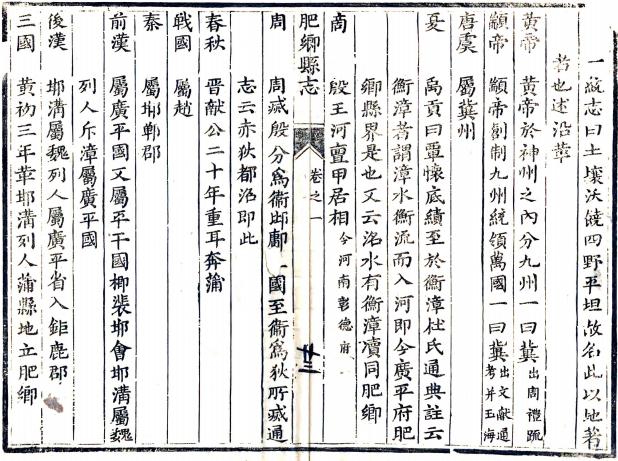 一統志曰土壤沃饒四野平坦故名此以地著
者也述沿革
黃帝 黃帝於神州之內分九州一曰冀出周禮疏
顓帝 顓帝創制九州統領萬國一曰冀出文獻通考并玉海
唐虞 屬冀州
夏 禹貢曰覃懷底績至於衡漳杜氏通典註云
衡漳者謂漳水衡流而入河即今廣平府肥
鄉縣界是也又云洺水有衡漳瀆同肥鄉
商 殷王河亶甲居相今河南彰德府
肥鄉縣志 卷之一
周 周滅殷分為衛邶鄘一國至衛為狄所滅通
志云赤狄都洺即此
春秋 晉獻公二十年重耳奔蒲
戰國 屬趙
秦 屬邯鄲郡
前漢 屬廣平國又屬平干國柳裴邯會邯溝屬魏
列人斥漳屬廣平國
後漢 邯溝屬魏列人屬廣平省入鉅鹿郡
三國 黃初三年革邯溝列人蒲縣地立肥鄉